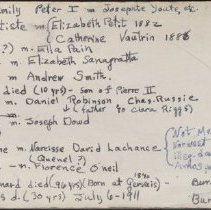 mily Peter I m. Josephte Joute, etc.
tiste m (Elizabeth Petit 1882
(Catherine Vautrin 1886
?) m. Ella Pain
m. Elizabeth
m Andrew Smith.
died (10 yrs) - Son of Pierre II
m. Daniel Robinson Chas. Russie
(father to Clara Riggs)
m. Joseph Dowd
Not Me
me m. Narcisse David Lachance
(Quenel?)
m. Florence O'neil
nard died (96 yrs) (Born at Gervais)
s d. (30 yrs) July 6-1911
Bur
Bur